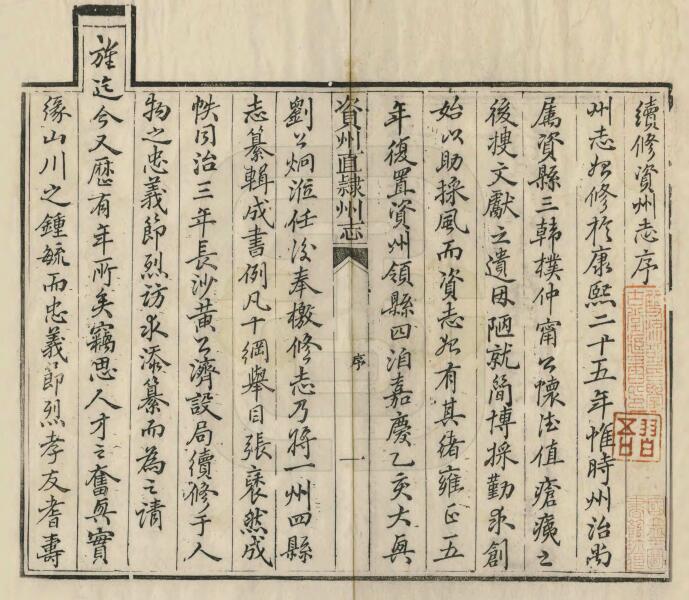 續修資州志序
州志始修於康熙二十五年惟時州治尚
属資縣三韓樸仲甯公懷法值瘡痍之
後搜文獻之遺因陋就簡博採勤求創
始以助採風而資志始有其緒雍正五
年復置資州領縣四洎嘉慶乙亥大興
資州直隸州志
序
一
劉公炯涖任後奉檄修志乃將一州四縣
志纂輯成書例凡十綱舉目張裒然成
帙同治三年長沙黄公濟設局續修于人
物之忠義節烈訪求添纂而為之請
旌迄今又歷有年所矣竊思人才之奮興實
緣山川之鍾毓而忠義節烈孝友耆壽